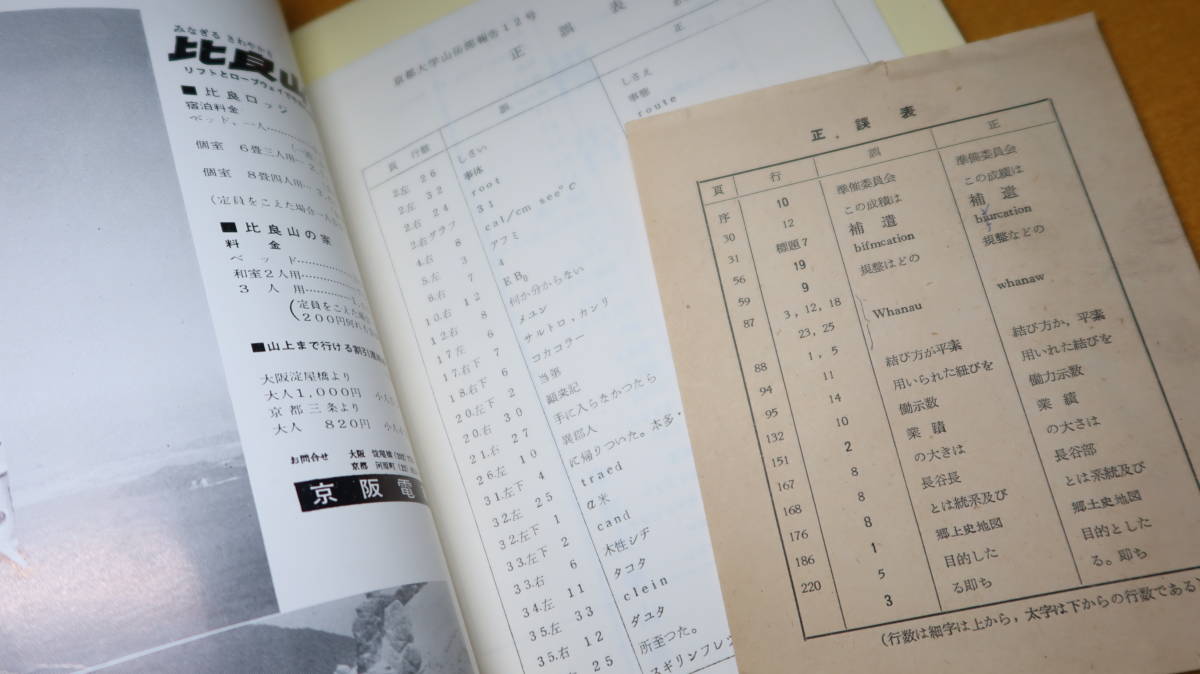 みなぎる さわやかさ
比良山
リフトとロープウェイ
■ 比良ロッジ
宿泊料金
ベッド,一人
個室 6畳三人用
個室 8畳四人用
(定員をこえた場合
■ 比良山の家
料 金
ベ ッ ド
和室2人用
3 人 用
(定員をこえた場
200円
■山上まで行ける割引
大阪淀屋橋より
大人1,000円
京都三条より
大人 820円
お問合せ 大阪
京都
京阪電
京都大学山岳部報告12号
正 誤 表
頁 行数 誤
2左 26 しさい しさえ
2左 32 事体 事態
2右 24 root route
2右グラフ 31
4右 8 cal/cm see°C
5左 3 アフミ
6右 7 4
10右 12 EB₀
12右 8 何か分からない
17左 6 メユン
17右下 7 サルトロ,カンリ
18右下 6 コカコラー
20左下 2 当第
20右 30 顛来記
21右 27 手に入らなかつたら
26左 10 異郡人
31左下 4 に帰りついた。本多・
32左 25 traed
32左下 1 α米
33左下 2 cand
33右 6 木性シヂ
34左 11 タコタ
35左 33 clein
35右 12 ダユタ
25 所至つた。
スギリンフレ
正 誤 表
頁 行 誤 正
序 10 準催委員会 準催委員会
30 12 この成積は この成績は
31 標題7 補遺 補遺
56 19 bifmcation
59 9 規整はどの 規整などの
87 3,12,18 Whanau whanaw
23,25
88 1,5 結び方が平素 結び方か,平素
94 11 用いられた紐びを 用いれた結びを
95 14 働示数 働力示数
132 10 業蹟 業績
151 2 の大きは の大さは
167 8 長谷長 長谷部
168 8 とは統系及び とは系統及び
176 8 郷上史地図 郷土史地図
186 1 目的した 目的とした
220 5 る即ち る。即ち
3
(行数は細字は上から,太字は下からの行数である)